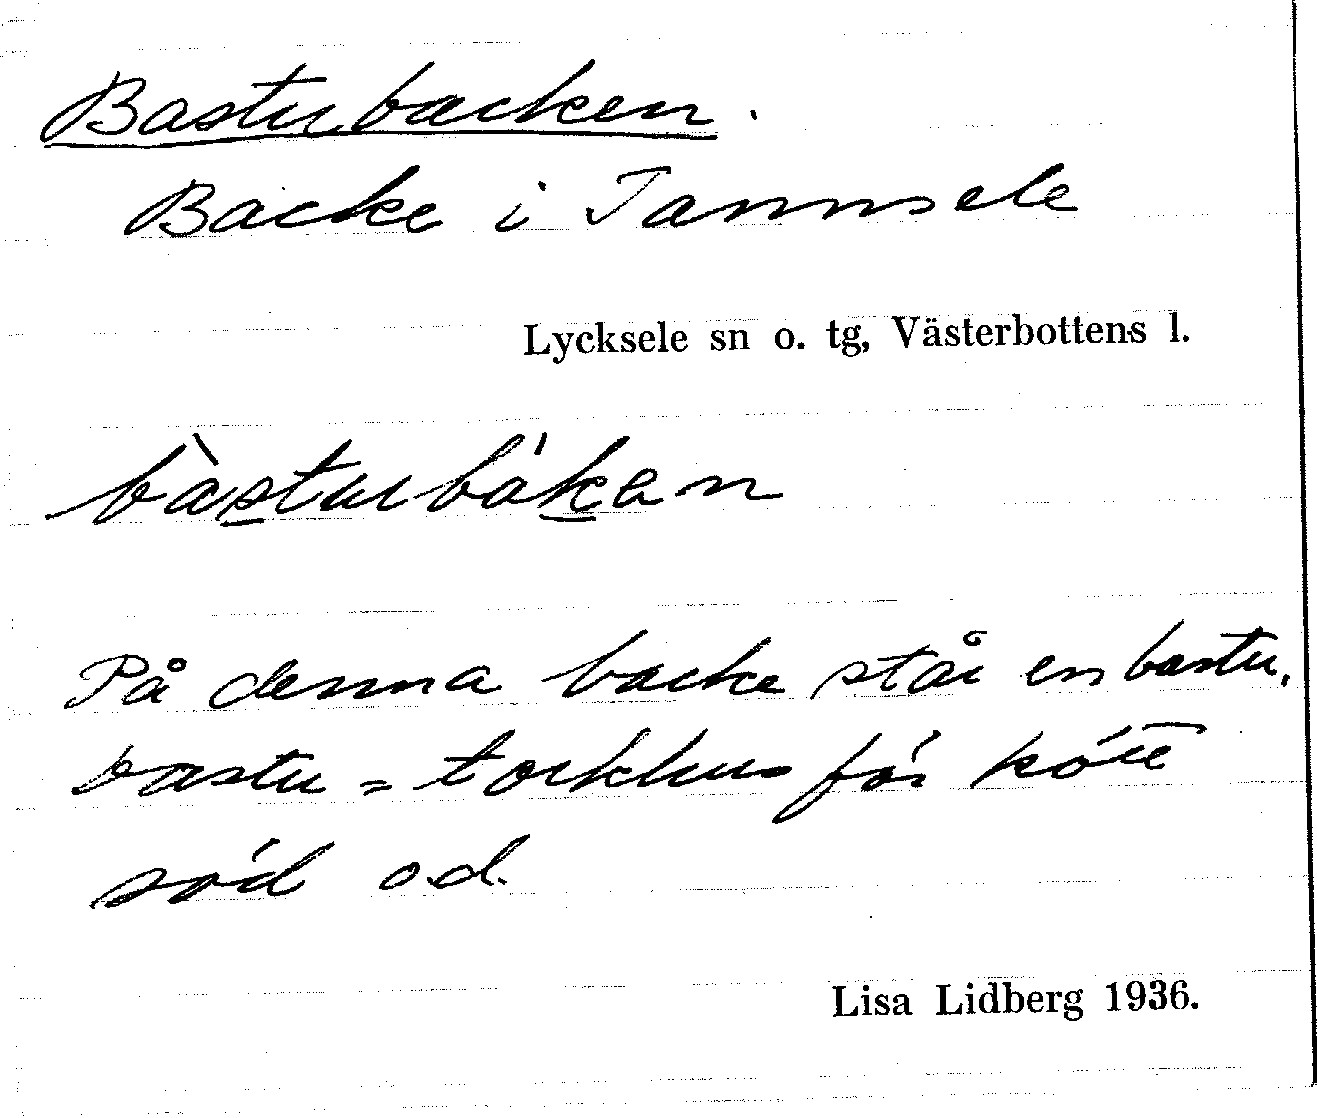 Bastubacken.
Backe i Tannsele
Lycksele sn o. tg, Västerbottens l.
bàstubák̲en
På denna backe står en bastu.
bastu = torkhus för kött
säd o.d.
Lisa Lidberg 1936.